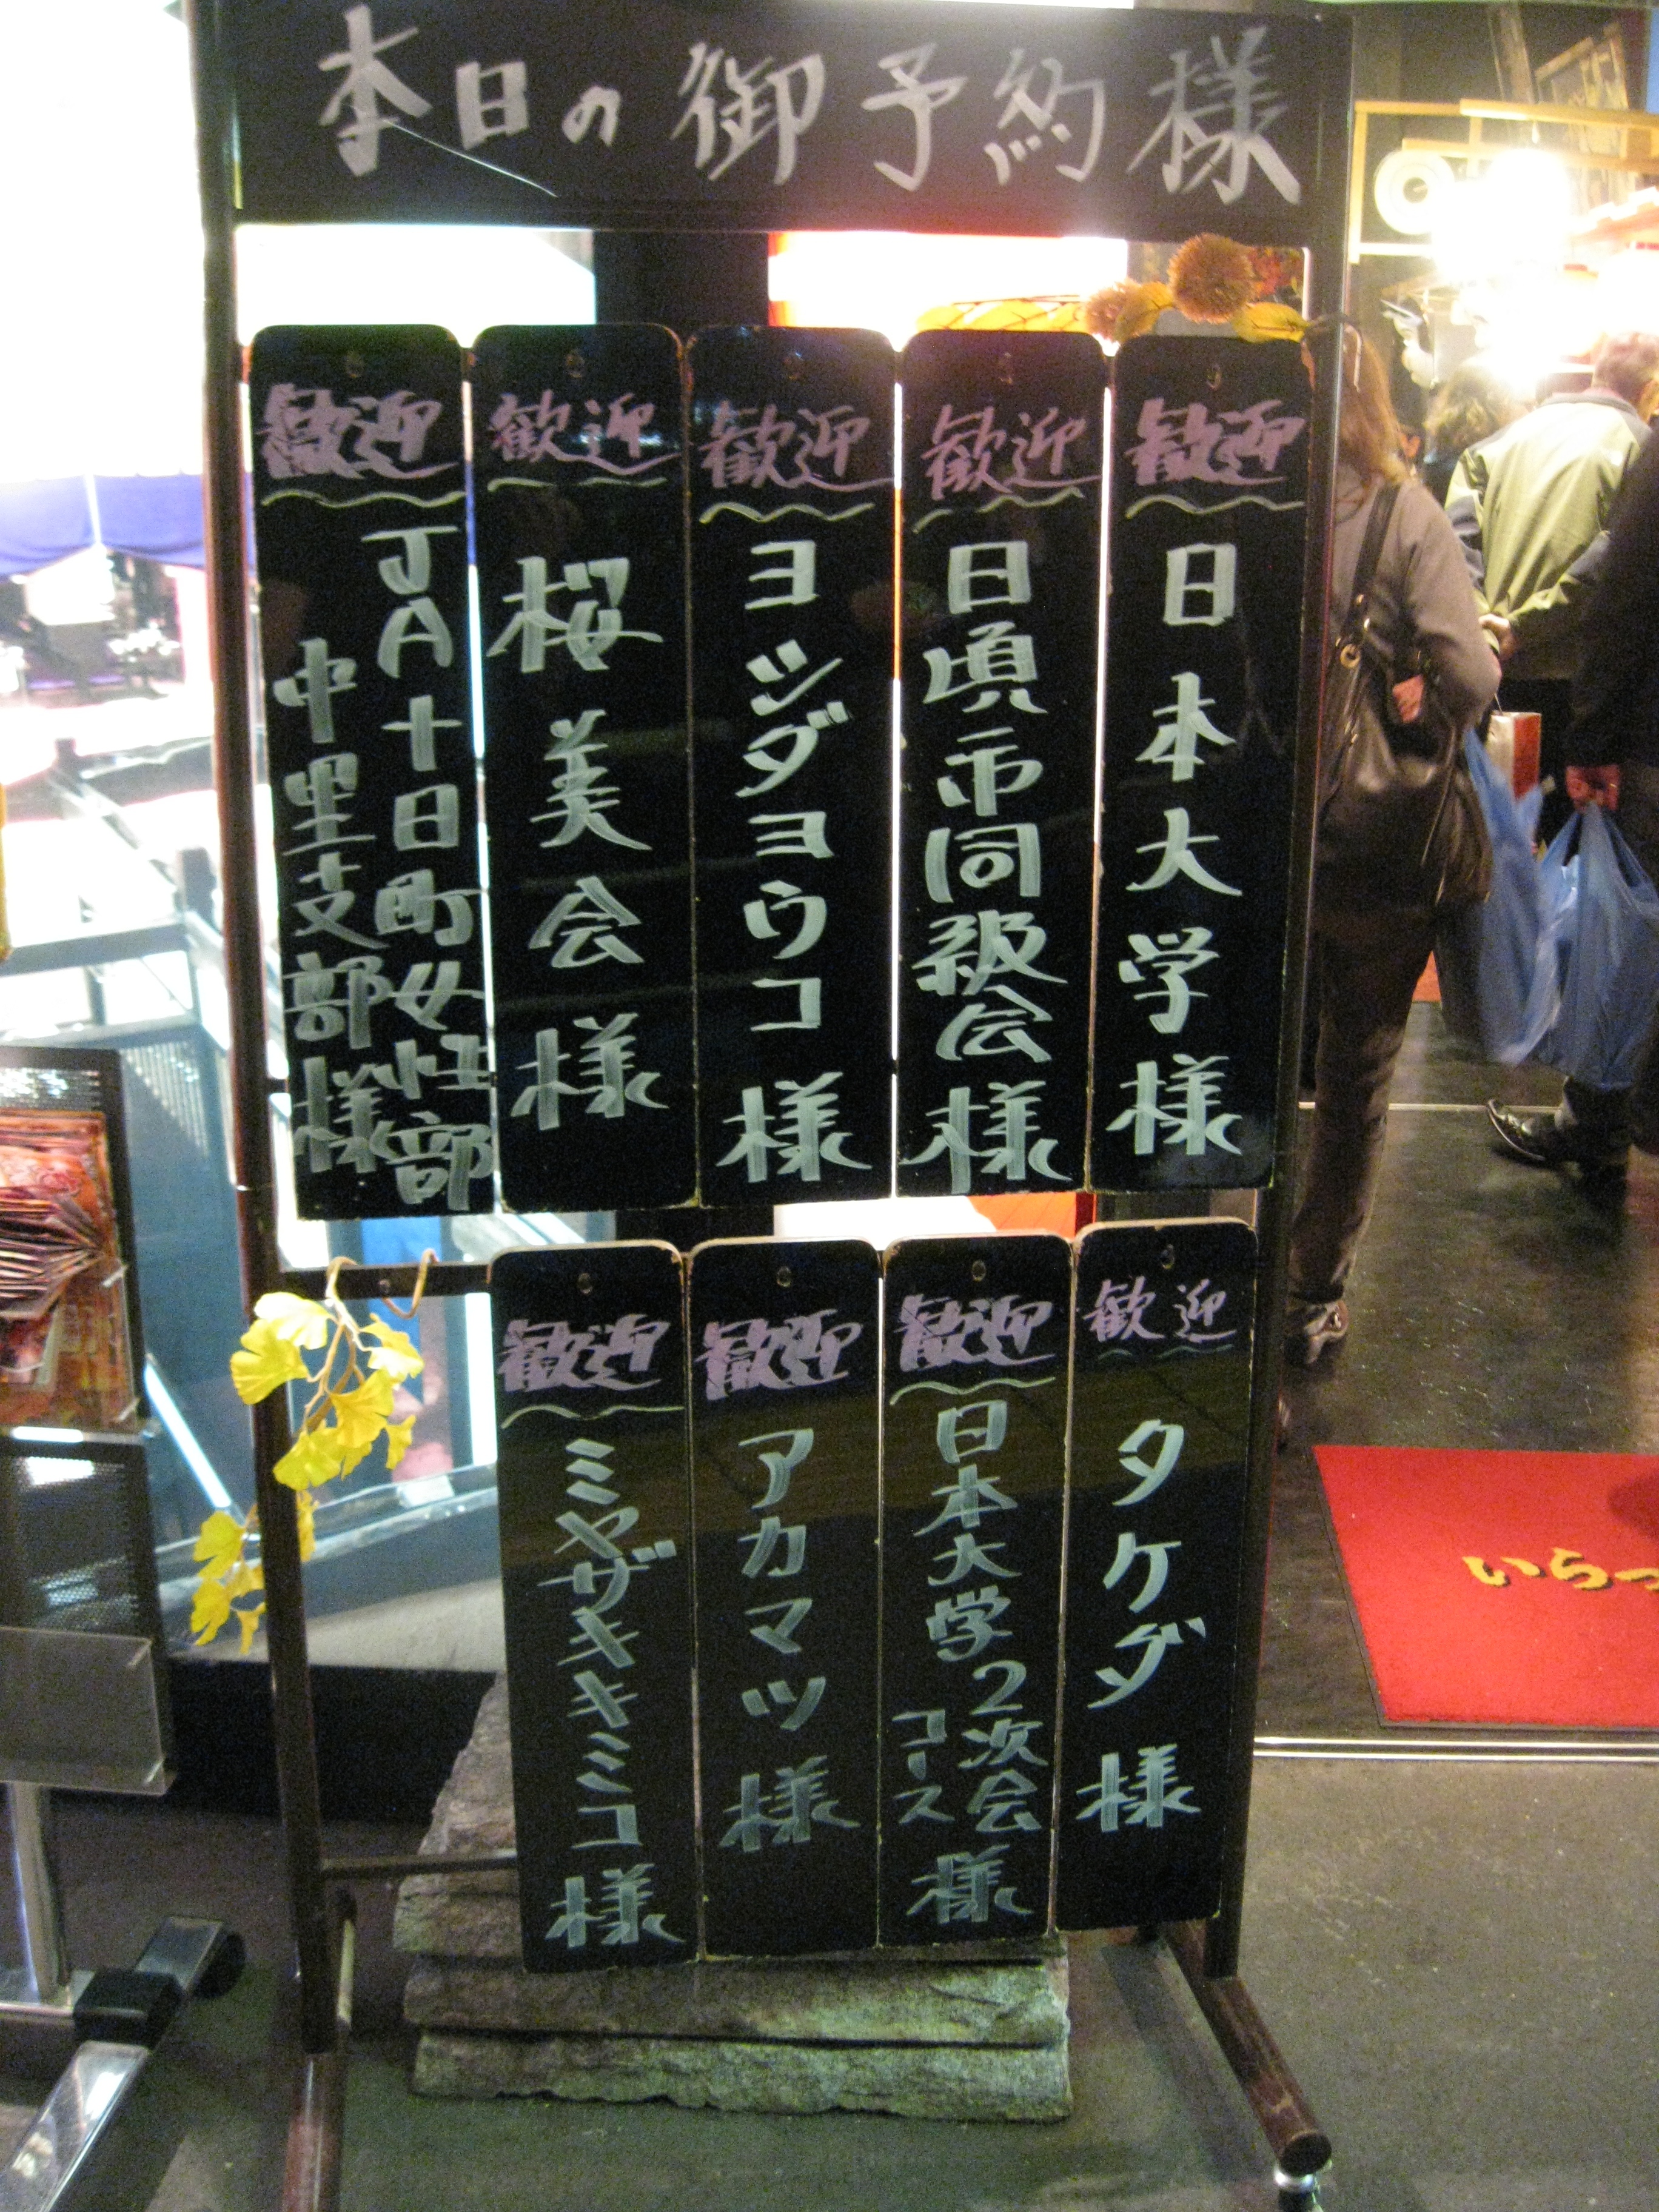 本日の御予約様
歓迎
日本大学様
歓迎
日頃市同級会様
歓迎
ヨシダヨウコ様
歓迎
桜美会様
歓迎
JA十日町女性部
中里支部様
歓迎
タケダ様
歓迎
日本大学2次会様
コース
歓迎
アカマツ様
歓迎
ミヤザキキミコ様
いらっ